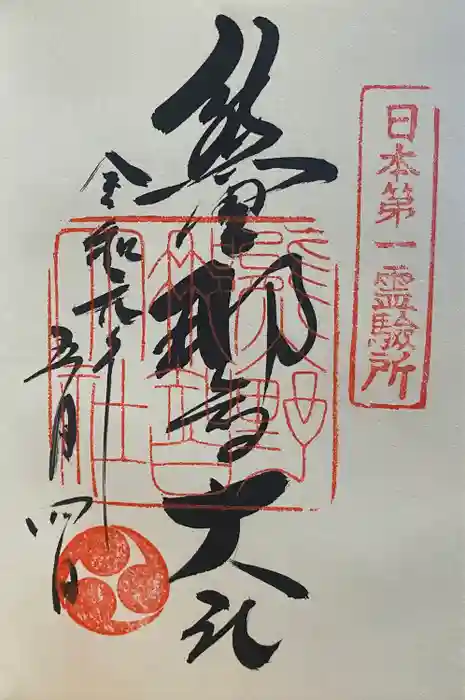 日本第一霊験所
熊野那智大社
令和元年
五月四日
熊野
那智
大社